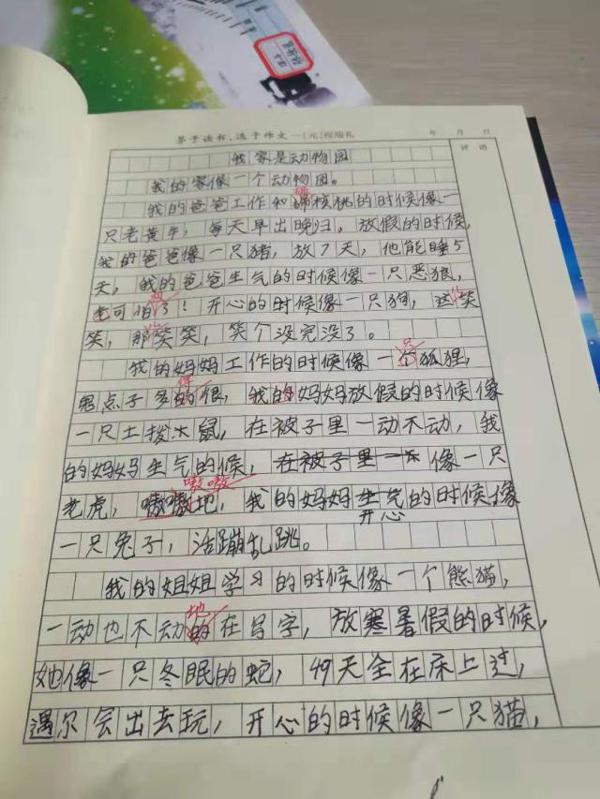 多于读书,逸于作文——[元]程端礼 年 月 日
评语
我家是动物园
我的家像一个动物园。
砸
我的爸爸工作和核桃的时候像一
只老黄牛,每天早出晚归,放假的时候,
我的爸爸像一只猪,放7天,他能睡5
天,我的爸爸生气的时候像一只恶狼,
可怕了!开心的时候像一只狗,这笑
笑,那笑笑,笑个没完没了。
只
我的妈妈工作的时候像一个狐狸,
得
鬼点子多的很,我的妈妈放假的时候像
一只土拨鼠,在被子里一动不动,我
的妈妈生气的候,在被子里一不像一只
嗷嗷
老虎,嗷嗷地,我的妈妈生气的时候像
开心
一只兔子,活蹦乱跳。
我的姐姐学习的时候像一个熊猫,
地
一动也不动的在写字,放寒暑假的时候,
她像一只冬眠的蛇,49天全在床上过,
遇尔会出去玩,开心的时候像一只猫,